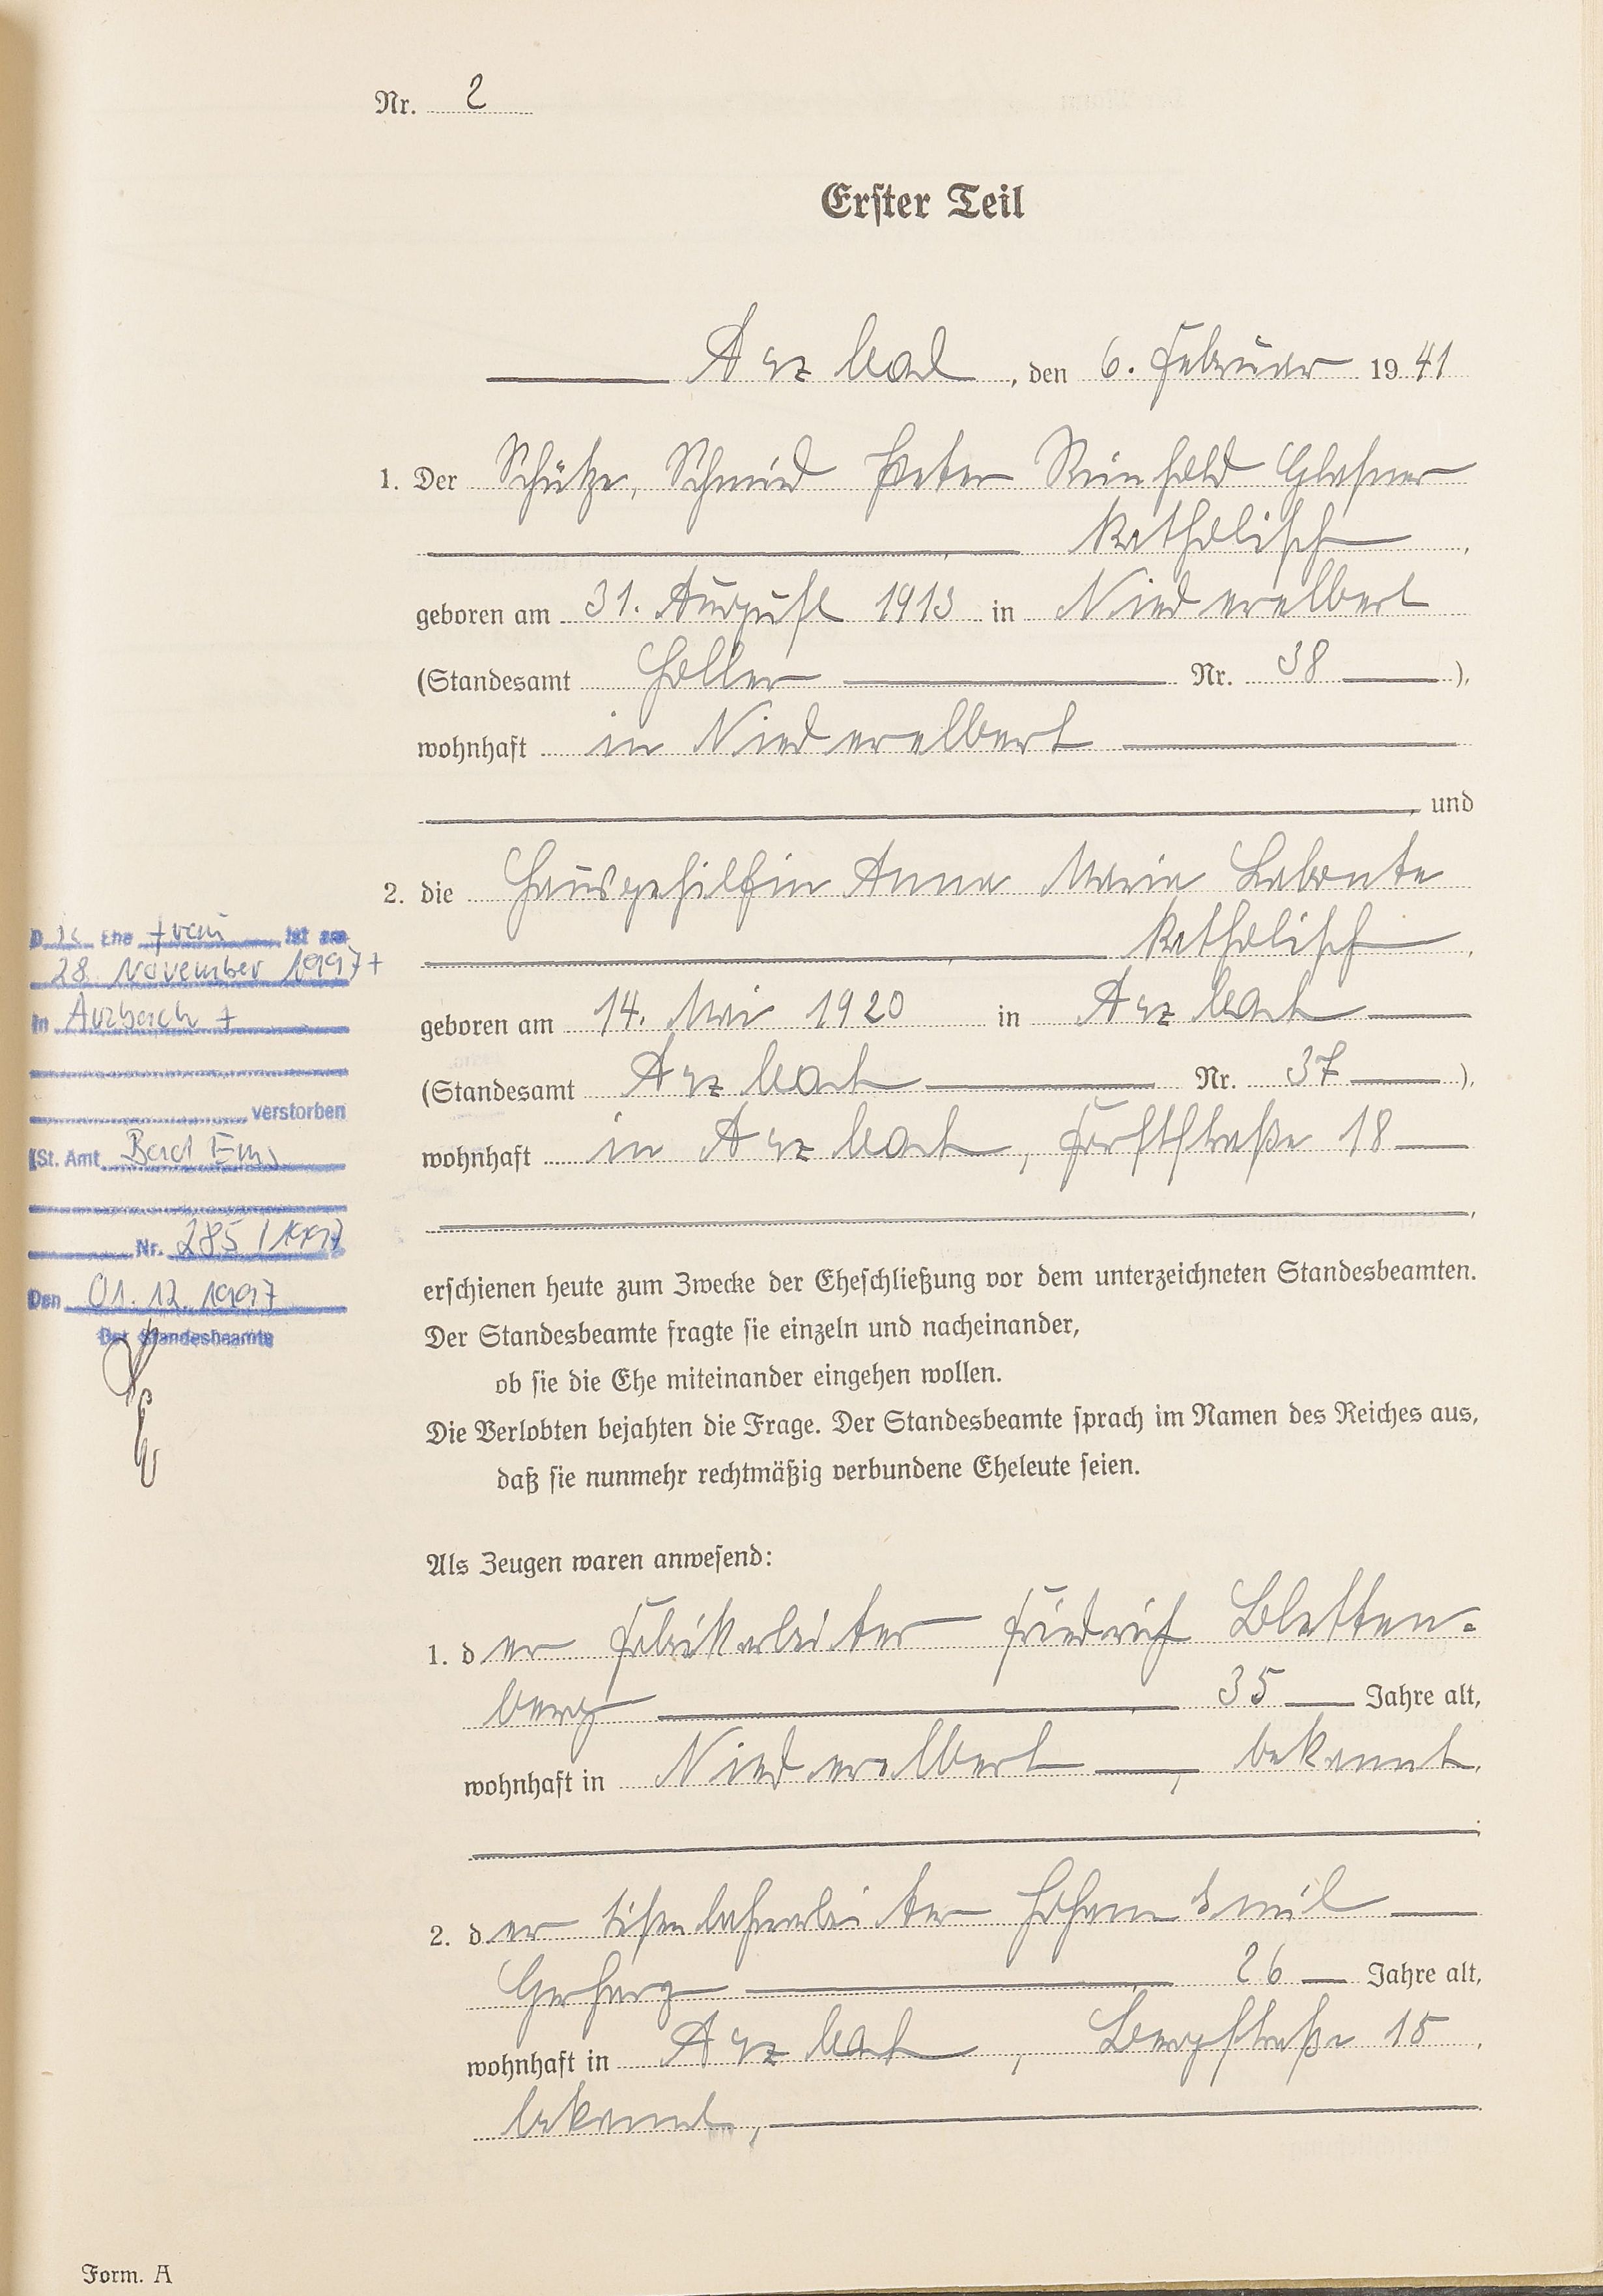 Nr. 2
Erster Teil
Arzbach, den 6. Februar 1941
1. Der Schütze, Schmied Peter Reinhold Glasner
katholisch,
geboren am 31. August 1913 in Niederelbert
(Standesamt Holler Nr. 38 ),
wohnhaft in Niederelbert
, und
2. die Hausgehilfin Anna Maria Labonte
katholisch,
geboren am 14. Mai 1920 in Arzbach
(Standesamt Arzbach Nr. 37 ),
wohnhaft in Arzbach, Forststraße 18
,
erschienen heute zum Zwecke der Eheschließung vor dem unterzeichneten Standesbeamten.
Der Standesbeamte fragte sie einzeln und nacheinander,
ob sie die Ehe miteinander eingehen wollen.
Die Verlobten bejahten die Frage. Der Standesbeamte sprach im Namen des Reiches aus,
daß sie nunmehr rechtmäßig verbundene Eheleute seien.
Als Zeugen waren anwesend:
1. der Fabrikarbeiter Friedrich Bletten-
berg 35 Jahre alt,
wohnhaft in Niederelbert, bekannt,
2. der Eisenbahnarbeiter Johann Emil
Gerharz 26 Jahre alt,
wohnhaft in Arzbach, Bergstraße 15,
bekannt,
Form. A
Die Ehefrau ist am
28. November 1997 +
in Arzbach +
verstorben
(St. Amt Bad Ems
Nr. 285/1997
Den 01.12.1997
Der Standesbeamte